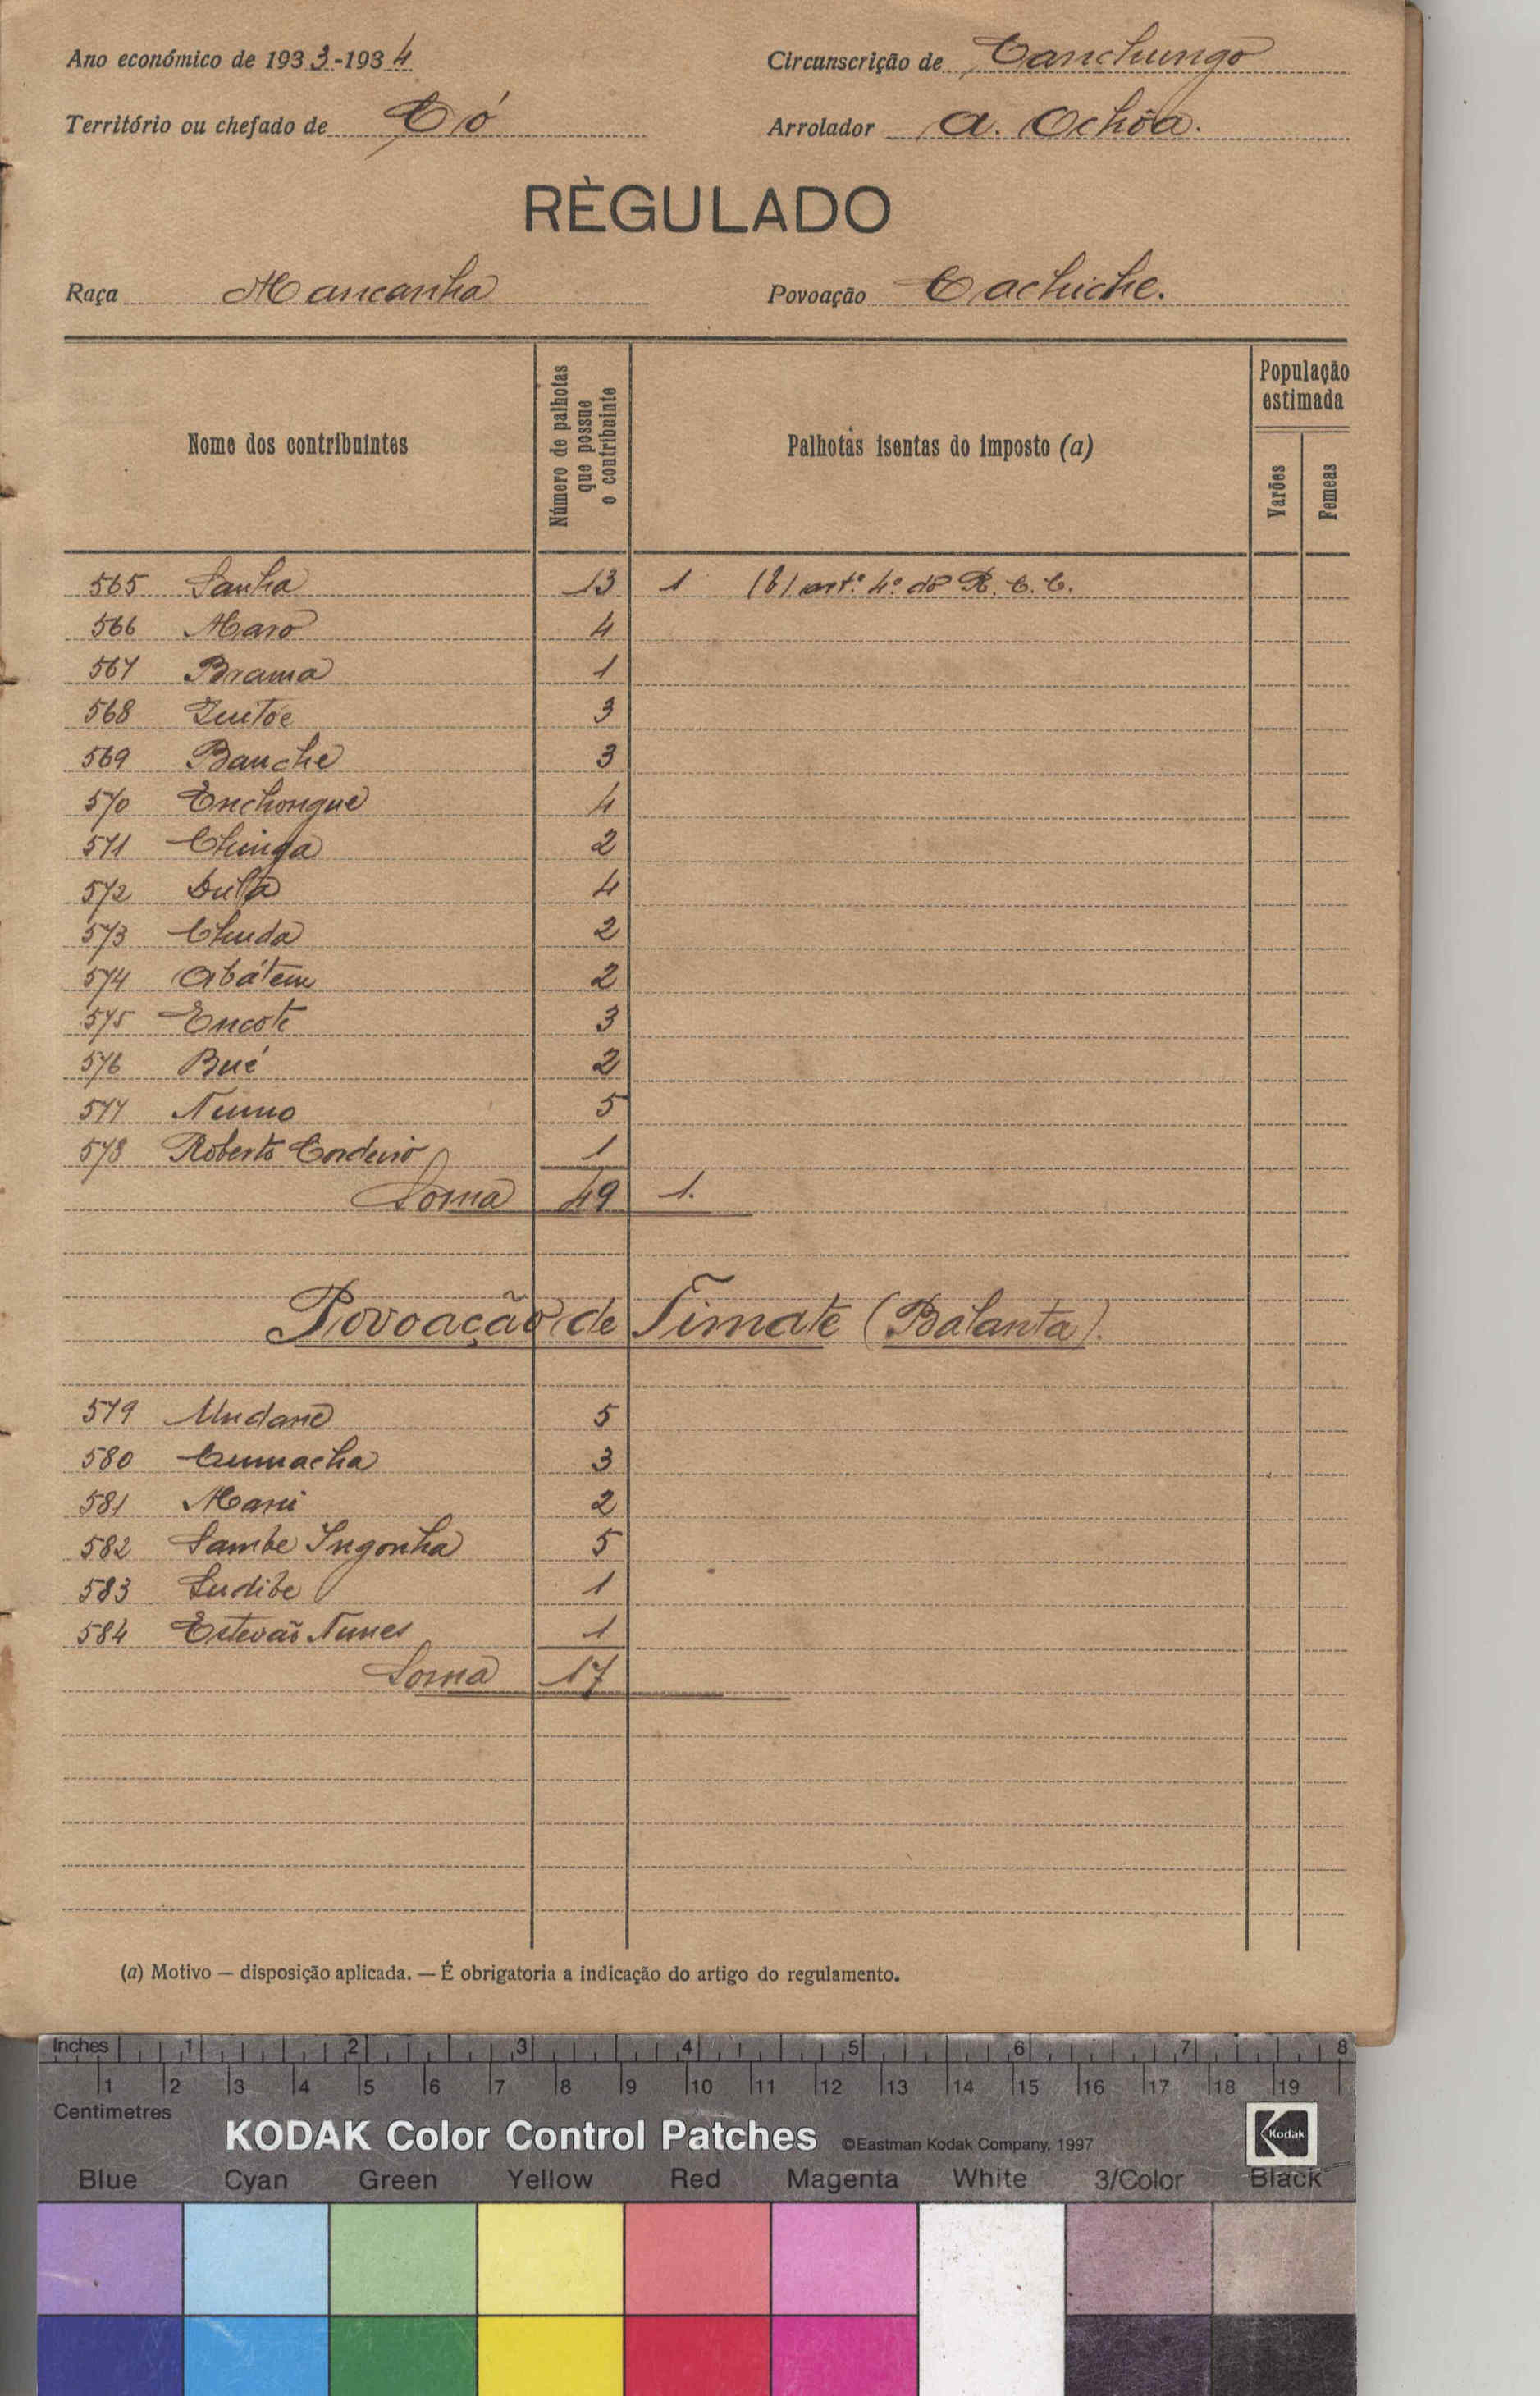 Ano económico de 1933-1934
Circunscrição de Canchungo
Território ou chefado de Có
Arrolador A. Ochôa.
RÈGULADO
Raça Mancanha
Povoação Cachiche.
Nome dos contribuintes
Número de palhotas que possue o contribuinte
Palhotas isentas do imposto (a)
População estimada
Varões
Femeas
565 Sanha 13 1 (b) artº. 4º. do R. C. C.
566 Maro 4
567 Brama 1
568 Quitóe 3
569 Banche 3
570 Enchongue 4
571 Chinga 2
572 Dula 4
573 Chuda 2
574 Abátem 2
575 Encote 3
576 Bué 2
577 Nunno 5
578 Roberto Cordeiro 1
Soma 49 1.
Povoação de Timate (Balanta).
579 Undané 5
580 Cumacha 3
581 Mani 2
582 Sambe Ingonha 5
583 Sudibe 1
584 Estevão Nunes 1
Soma 17
(a) Motivo — disposição aplicada. — É obrigatoria a indicação do artigo do regulamento.
Inches 1 2 3 4 5 6 7 8
1 2 3 4 5 6 7 8 9 10 11 12 13 14 15 16 17 18 19
Centimetres
KODAK Color Control Patches ©Eastman Kodak Company, 1997 Kodak
Blue Cyan Green Yellow Red Magenta White 3/Color Black